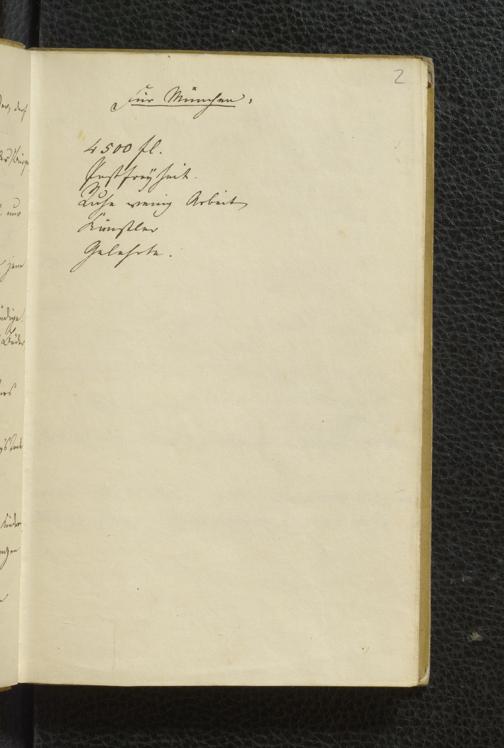 2
Für München:
4500 fl.
Postfreyheit.
Ruhe wenig Arbeit,
Künstler
Gelehrte.
nur